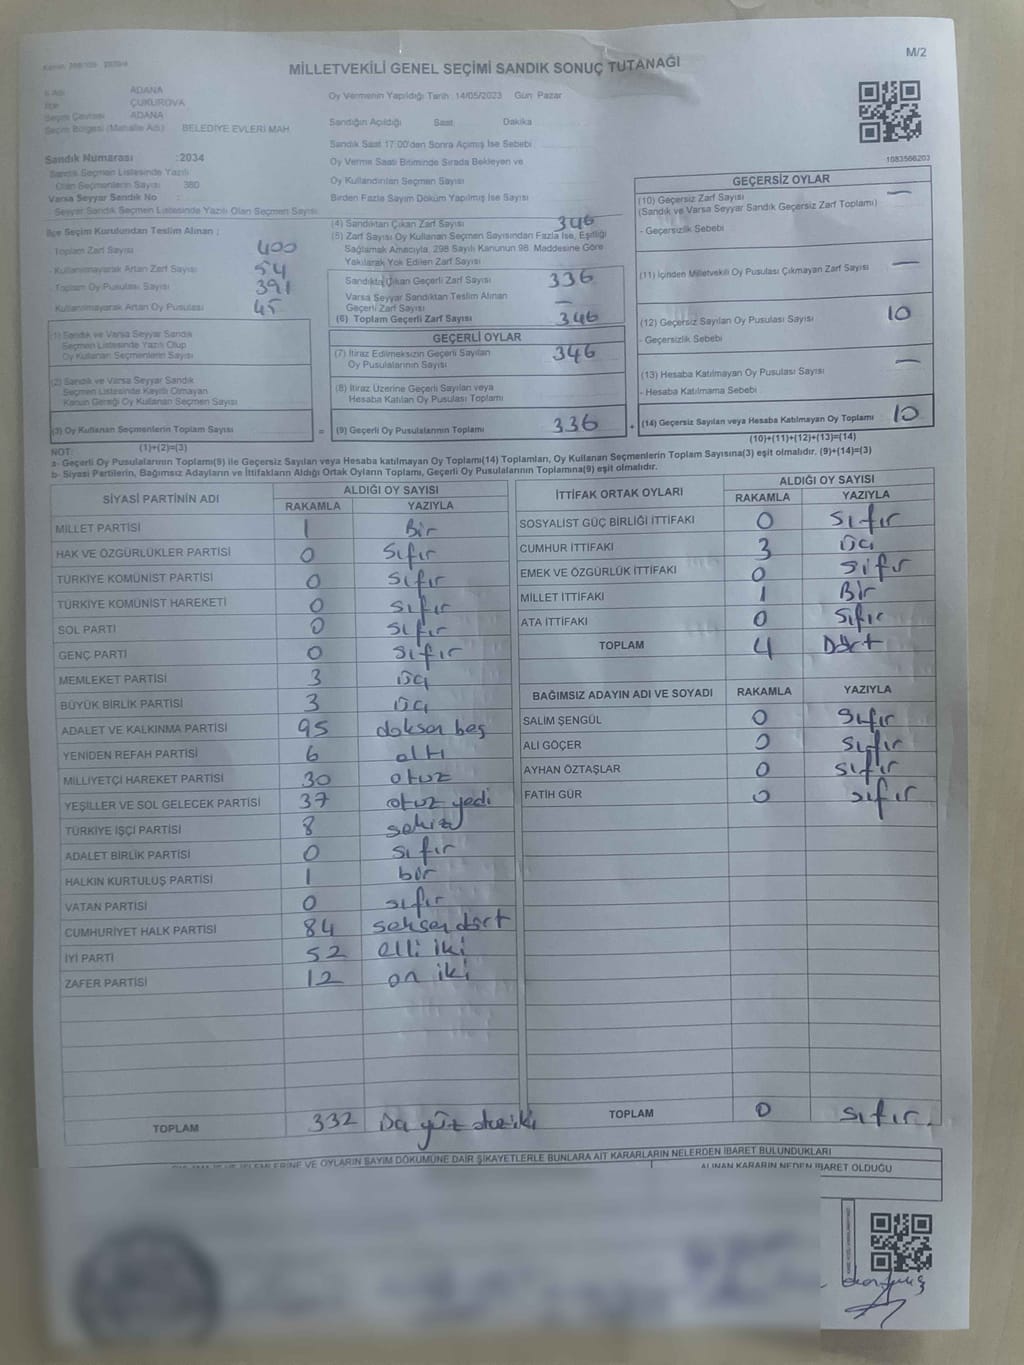 M/2
MİLLETVEKİLİ GENEL SEÇİMİ SANDIK SONUÇ TUTANAĞI
İl Adı ADANA
İlçe ÇUKUROVA
Seçim Çevresi ADANA
Seçim Bölgesi (Mahalle Adı) BELEDİYE EVLERİ MAH.
Sandık Numarası :2034
Sandık Seçmen Listesinde Yazılı
Olan Seçmenlerin Sayısı 380
Varsa Seyyar Sandık No :
Seyyar Sandık Seçmen Listesinde Yazılı Olan Seçmen Sayısı
İlçe Seçim Kurulundan Teslim Alınan ;
- Toplam Zarf Sayısı 400
- Kullanılmayarak Artan Zarf Sayısı 54
- Toplam Oy Pusulası Sayısı 391
- Kullanılmayarak Artan Oy Pusulası 45
(1) Sandık ve Varsa Seyyar Sandık
Seçmen Listesinde Yazılı Olup
Oy Kullanan Seçmenlerin Sayısı
(2) Sandık ve Varsa Seyyar Sandık
Seçmen Listesinde Kayıtlı Olmayan
Kanun Gereği Oy Kullanan Seçmen Sayısı
(3) Oy Kullanan Seçmenlerin Toplam Sayısı
(1)+(2)=(3)
Oy Vermenin Yapıldığı Tarih :14/05/2023 Gün: Pazar
Sandığın Açıldığı Saat Dakika
Sandık Saat 17:00'den Sonra Açımış İse Sebebi
Oy Verme Saati Bitiminde Sırada Bekleyen ve
Oy Kullandırılan Seçmen Sayısı
Birden Fazla Sayım Döküm Yapılmış İse Sayısı
(4) Sandıktan Çıkan Zarf Sayısı 346
(5) Zarf Sayısı Oy Kullanan Seçmen Sayısından Fazla İse, Eşitliği
Sağlamak Amacıyla, 298 Sayılı Kanunun 98. Maddesine Göre
Yakılarak Yok Edilen Zarf Sayısı
Sandıktan Çıkan Geçerli Zarf Sayısı 336
Varsa Seyyar Sandıktan Teslim Alınan
Geçerli Zarf Sayısı —
(6) Toplam Geçerli Zarf Sayısı 346
GEÇERLİ OYLAR
(7) İtiraz Edilmeksizin Geçerli Sayılan
Oy Pusulalarının Sayısı 346
(8) İtiraz Üzerine Geçerli Sayılan veya
Hesaba Katılan Oy Pusulası Toplamı
= (9) Geçerli Oy Pusulalarının Toplamı 336 +
1083566203
GEÇERSİZ OYLAR
(10) Geçersiz Zarf Sayısı —
(Sandık ve Varsa Seyyar Sandık Geçersiz Zarf Toplamı)
- Geçersizlik Sebebi
(11) İçinden Milletvekili Oy Pusulası Çıkmayan Zarf Sayısı —
(12) Geçersiz Sayılan Oy Pusulası Sayısı 10
- Geçersizlik Sebebi
(13) Hesaba Katılmayan Oy Pusulası Sayısı —
- Hesaba Katılmama Sebebi
(14) Geçersiz Sayılan veya Hesaba Katılmayan Oy Toplamı 10
(10)+(11)+(12)+(13)=(14)
NOT:
a- Geçerli Oy Pusulalarının Toplamı(9) ile Geçersiz Sayılan veya Hesaba katılmayan Oy Toplamı(14) Toplamları, Oy Kullanan Seçmenlerin Toplam Sayısına(3) eşit olmalıdır. (9)+(14)=(3)
b- Siyasi Partilerin, Bağımsız Adayların ve İttifakların Aldığı Ortak Oyların Toplamı, Geçerli Oy Pusulalarının Toplamına(9) eşit olmalıdır.
SİYASİ PARTİNİN ADI ALDIĞI OY SAYISI
RAKAMLA YAZIYLA
MİLLET PARTİSİ 1 Bir
HAK VE ÖZGÜRLÜKLER PARTİSİ 0 Sıfır
TÜRKİYE KOMÜNİST PARTİSİ 0 sıfır
TÜRKİYE KOMÜNİST HAREKETİ 0 sıfır
SOL PARTİ 0 sıfır
GENÇ PARTİ 0 sıfır
MEMLEKET PARTİSİ 3 üç
BÜYÜK BİRLİK PARTİSİ 3 üç
ADALET VE KALKINMA PARTİSİ 95 doksan beş
YENİDEN REFAH PARTİSİ 6 altı
MİLLİYETÇİ HAREKET PARTİSİ 30 otuz
YEŞİLLER VE SOL GELECEK PARTİSİ 37 otuz yedi
TÜRKİYE İŞÇİ PARTİSİ 8 sekiz
ADALET BİRLİK PARTİSİ 0 sıfır
HALKIN KURTULUŞ PARTİSİ 1 bir
VATAN PARTİSİ 0 sıfır
CUMHURİYET HALK PARTİSİ 84 seksen dört
İYİ PARTİ 52 elli iki
ZAFER PARTİSİ 12 on iki
TOPLAM 332 üç yüz otuz iki
İTTİFAK ORTAK OYLARI ALDIĞI OY SAYISI
RAKAMLA YAZIYLA
SOSYALİST GÜÇ BİRLİĞİ İTTİFAKI 0 sıfır
CUMHUR İTTİFAKI 3 üç
EMEK VE ÖZGÜRLÜK İTTİFAKI 0 sıfır
MİLLET İTTİFAKI 1 Bir
ATA İTTİFAKI 0 sıfır
TOPLAM 4 Dört
BAĞIMSIZ ADAYIN ADI VE SOYADI RAKAMLA YAZIYLA
SALİM ŞENGÜL 0 sıfır
ALİ GÖÇER 0 sıfır
AYHAN ÖZTAŞLAR 0 sıfır
FATİH GÜR 0 sıfır
TOPLAM 0 sıfır.
VE OYLARIN SAYIM DÖKÜMÜNE DAİR ŞİKAYETLERLE BUNLARA AİT KARARLARIN NELERDEN İBARET BULUNDUKLARI
ALINAN KARARIN NEDEN İBARET OLDUĞU